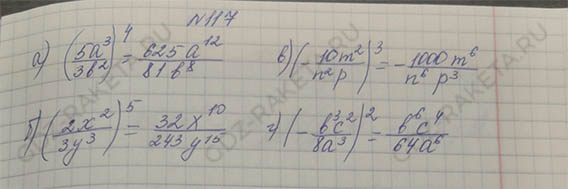 №117
а) (5a³/3b²)⁴ = 625a¹²/81b⁸
в) (-10m²/n²p)³ = -1000m⁶/n⁶p³
б) (2x²/3y³)⁵ = 32x¹⁰/243y¹⁵
г) (-b³c²/8a³)² = b⁶c⁴/64a⁶
GDZ-RAKETA.RU